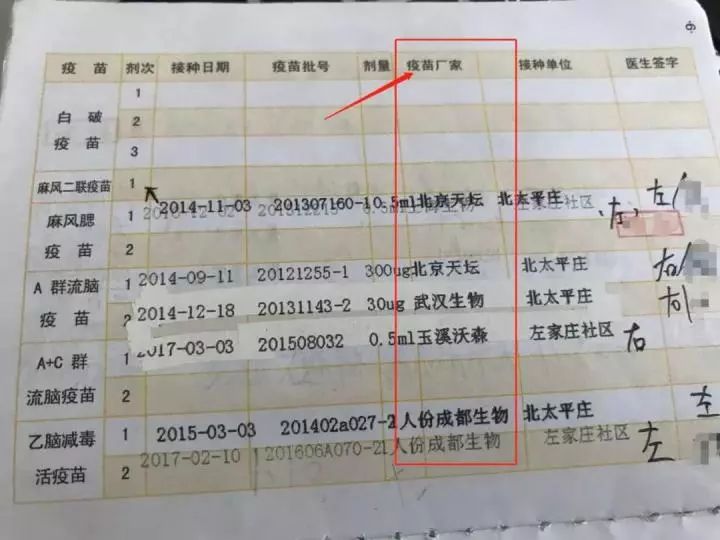 9
疫 苗 剂次 接种日期 疫苗批号 剂量 疫苗厂家 接种单位 医生签字
白 破 疫 苗 1
2
3
麻风二联疫苗 1 2014-11-03 201307160-1 0.5ml 北京天坛 北太平庄 左
麻风腮 疫 苗 1 0.5ml 左家庄社区 左
2
A 群流脑 疫 苗 1 2014-09-11 20121255-1 300ug 北京天坛 北太平庄 右
2 2014-12-18 20131143-2 30ug 武汉生物 北太平庄 右
A+C 群 流脑疫苗 1 2017-03-03 201508032 0.5ml 玉溪沃森 左家庄社区 右
2
乙脑减毒 活疫苗 1 2015-03-03 201402a027-2 人份 成都生物 北太平庄 左
2 2017-02-10 201606A070-2 1人份 成都生物 左家庄社区 左